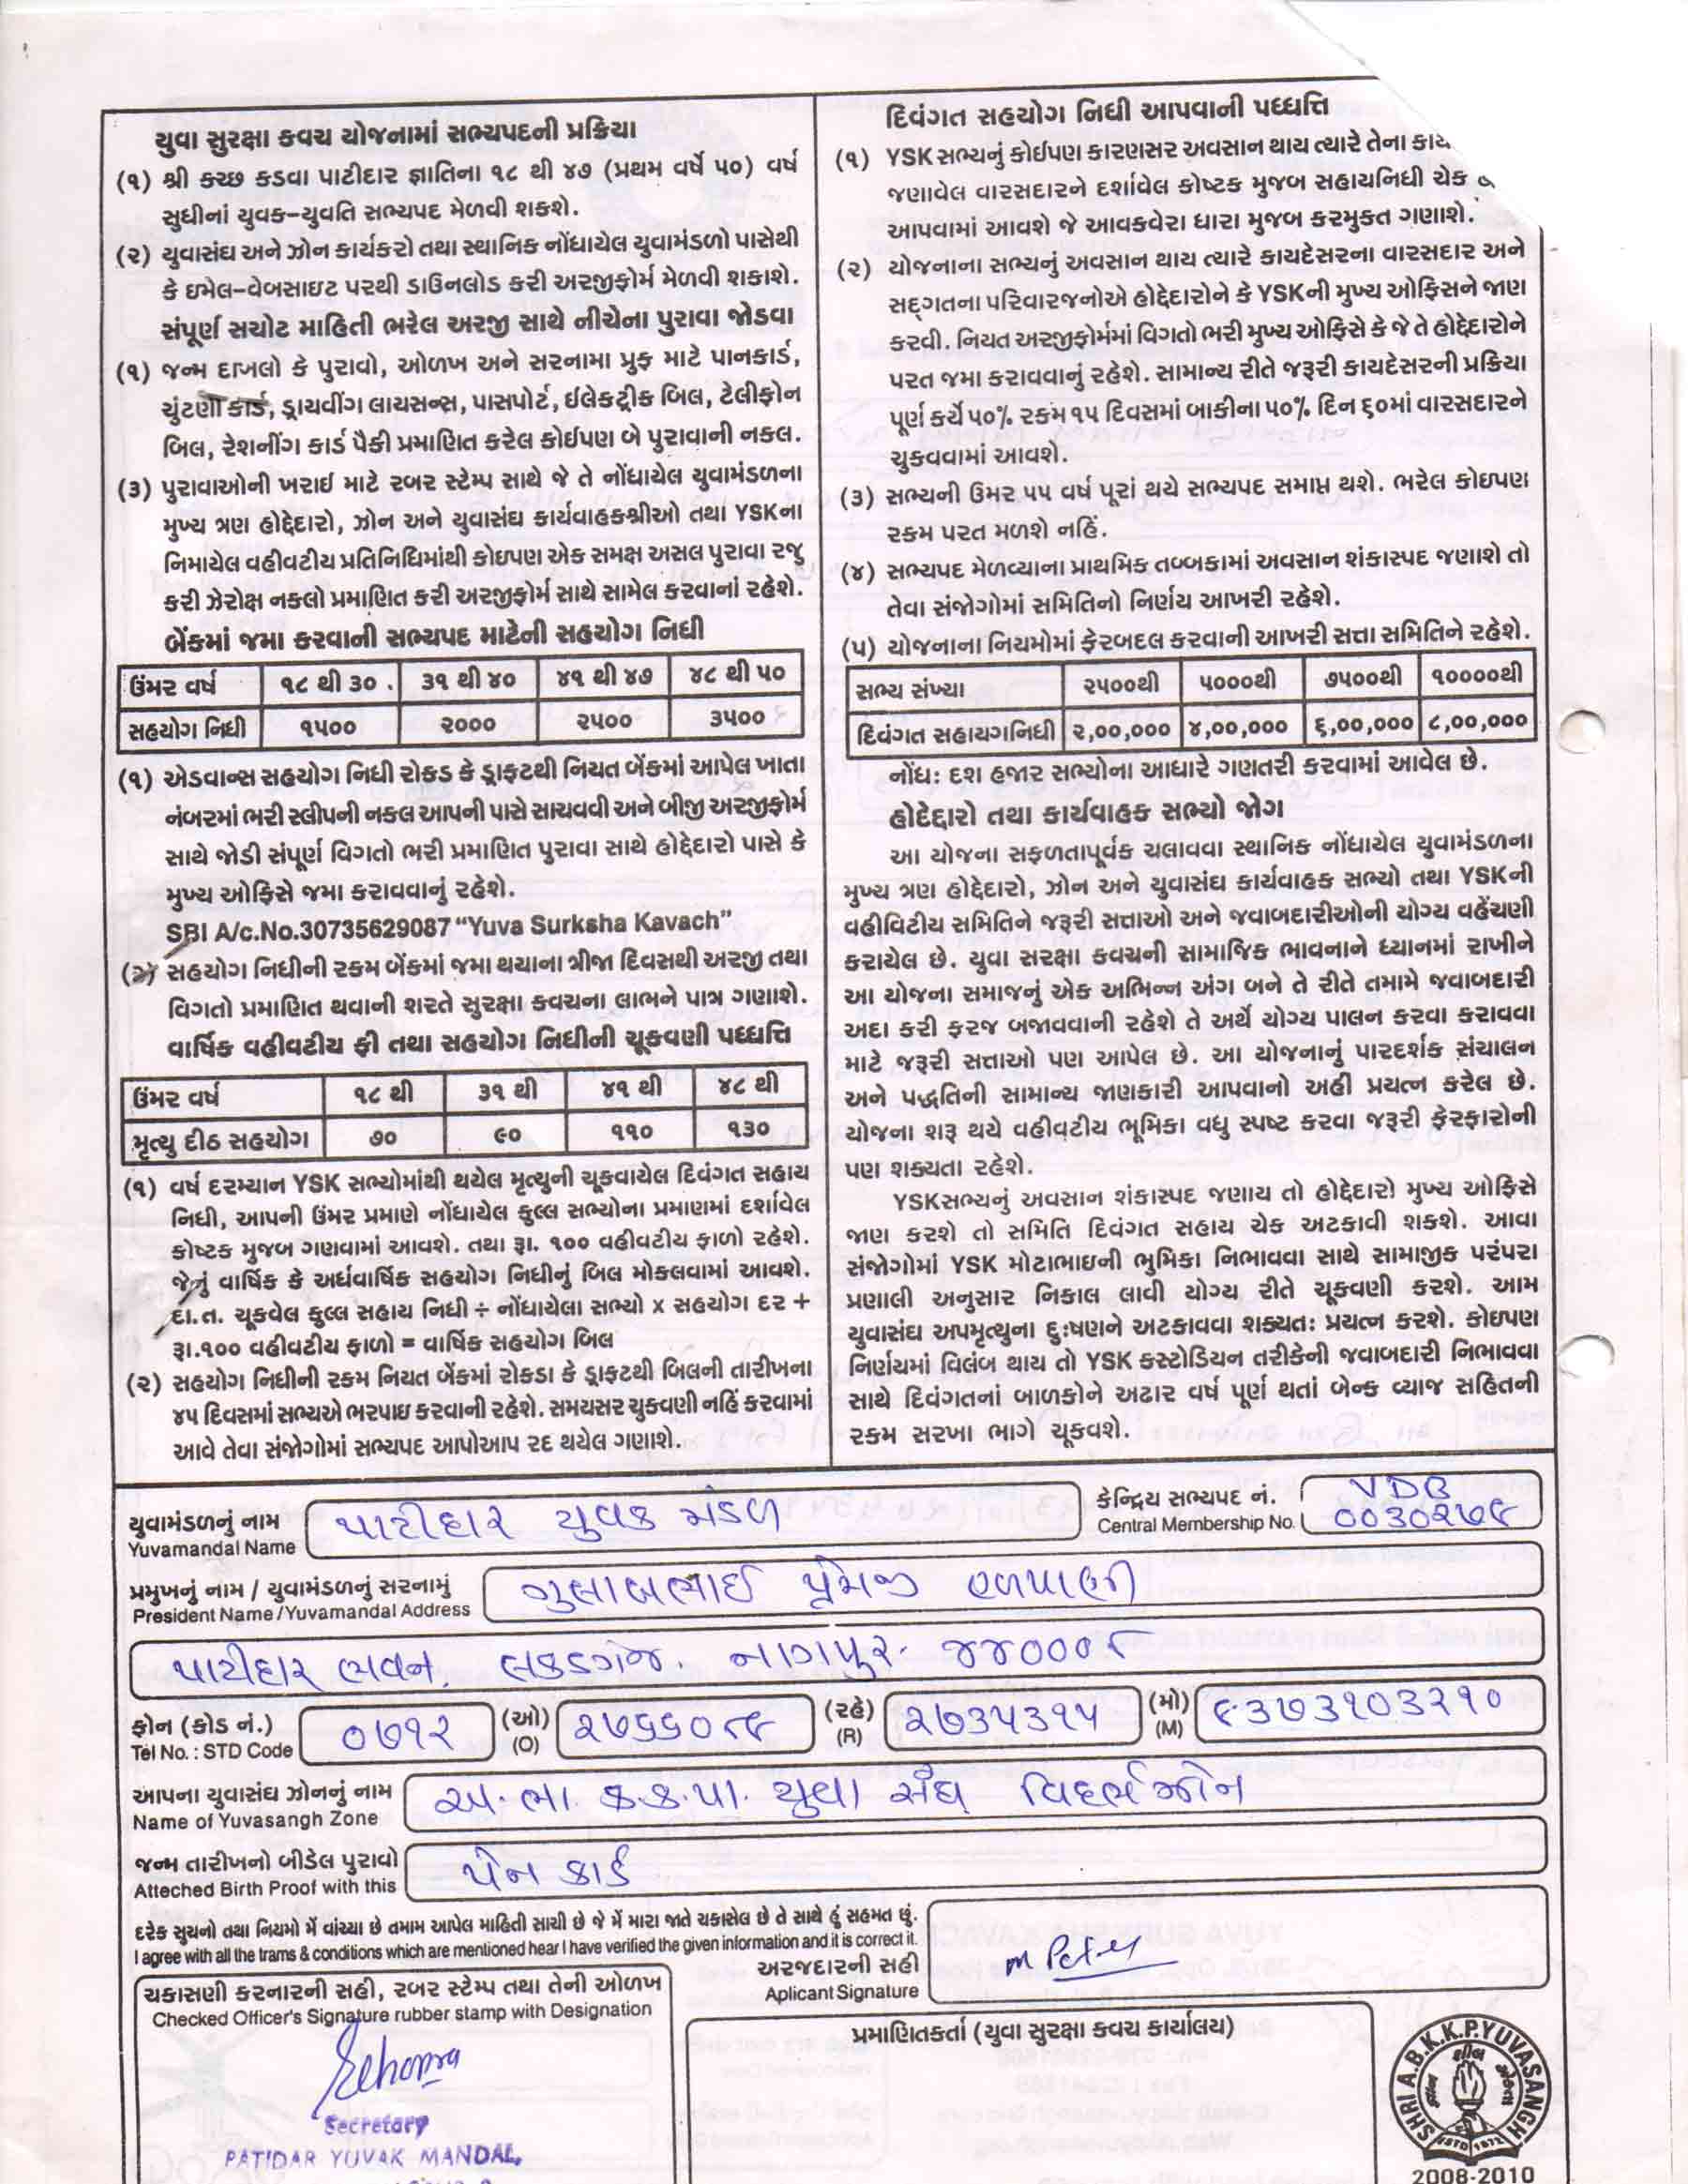 યુવા સુરક્ષા કવચ યોજનામાં સભ્યપદની પ્રક્રિયા
(૧) શ્રી કચ્છ કડવા પાટીદાર જ્ઞાતિના ૧૮ થી ૪૭ (પ્રથમ વર્ષે ૫૦) વર્ષ
સુધીનાં યુવક-યુવતિ સભ્યપદ મેળવી શકશે.
(૨) યુવાસંઘ અને ઝોન કાર્યકરો તથા સ્થાનિક નોંધાયેલ યુવામંડળો પાસેથી
કે ઇમેલ-વેબસાઇટ પરથી ડાઉનલોડ કરી અરજીફોર્મ મેળવી શકાશે.
સંપૂર્ણ સચોટ માહિતી ભરેલ અરજી સાથે નીચેના પુરાવા જોડવા
(૧) જન્મ દાખલો કે પુરાવો, ઓળખ અને સરનામા પ્રુફ માટે પાનકાર્ડ,
ચુંટણી કાર્ડ, ડ્રાયવીંગ લાયસન્સ, પાસપોર્ટ, ઈલેકટ્રીક બિલ, ટેલીફોન
બિલ, રેશનીંગ કાર્ડ પૈકી પ્રમાણિત કરેલ કોઈપણ બે પુરાવાની નકલ.
(૩) પુરાવાઓની ખરાઈ માટે રબર સ્ટેમ્પ સાથે જે તે નોંધાયેલ યુવામંડળના
મુખ્ય ત્રણ હોદ્દેદારો, ઝોન અને યુવાસંઘ કાર્યવાહકશ્રીઓ તથા YSKના
નિમાયેલ વહીવટીય પ્રતિનિધિમાંથી કોઇપણ એક સમક્ષ અસલ પુરાવા રજુ
કરી ઝેરોક્ષ નકલો પ્રમાણિત કરી અરજીફોર્મ સાથે સામેલ કરવાનાં રહેશે.
બેંકમાં જમા કરવાની સભ્યપદ માટેની સહયોગ નિધી
ઉંમર વર્ષ ૧૮ થી ૩૦ . ૩૧ થી ૪૦ ૪૧ થી ૪૭ ૪૮ થી ૫૦
સહયોગ નિધી ૧૫૦૦ ૨૦૦૦ ૨૫૦૦ ૩૫૦૦
(૧) એડવાન્સ સહયોગ નિધી રોકડ કે ડ્રાફટથી નિયત બેંકમાં આપેલ ખાતા
નંબરમાં ભરી સ્લીપની નકલ આપની પાસે સાચવવી અને બીજી અરજીફોર્મ
સાથે જોડી સંપૂર્ણ વિગતો ભરી પ્રમાણિત પુરાવા સાથે હોદ્દેદારો પાસે કે
મુખ્ય ઓફિસે જમા કરાવવાનું રહેશે.
SBI A/c.No.30735629087 “Yuva Surksha Kavach”
(૨) સહયોગ નિધીની રકમ બેંકમાં જમા થયાના ત્રીજા દિવસથી અરજી તથા
વિગતો પ્રમાણિત થવાની શરતે સુરક્ષા કવચના લાભને પાત્ર ગણાશે.
વાર્ષિક વહીવટીય ફી તથા સહયોગ નિધીની ચૂકવણી પધ્ધત્તિ
ઉંમર વર્ષ ૧૮ થી ૩૧ થી ૪૧ થી ૪૮ થી
મૃત્યુ દીઠ સહયોગ ૭૦ ૯૦ ૧૧૦ ૧૩૦
(૧) વર્ષ દરમ્યાન YSK સભ્યોમાંથી થયેલ મૃત્યુની ચૂકવાયેલ દિવંગત સહાય
નિધી, આપની ઉંમર પ્રમાણે નોંધાયેલ કુલ્લ સભ્યોના પ્રમાણમાં દર્શાવેલ
કોષ્ટક મુજબ ગણવામાં આવશે. તથા રૂા. ૧૦૦ વહીવટીય ફાળો રહેશે.
જેનું વાર્ષિક કે અર્ધવાર્ષિક સહયોગ નિધીનું બિલ મોકલવામાં આવશે.
દા.ત. ચૂકવેલ કુલ્લ સહાય નિધી ÷ નોંધાયેલા સભ્યો x સહયોગ દર +
રૂા.૧૦૦ વહીવટીય ફાળો = વાર્ષિક સહયોગ બિલ
(૨) સહયોગ નિધીની રકમ નિયત બેંકમાં રોકડા કે ડ્રાફટથી બિલની તારીખના
૪૫ દિવસમાં સભ્યએ ભરપાઇ કરવાની રહેશે. સમયસર ચુકવણી નહિં કરવામાં
આવે તેવા સંજોગોમાં સભ્યપદ આપોઆપ રદ થયેલ ગણાશે.
દિવંગત સહયોગ નિધી આપવાની પધ્ધત્તિ
(૧) YSK સભ્યનું કોઈપણ કારણસર અવસાન થાય ત્યારે તેના
જણાવેલ વારસદારને દર્શાવેલ કોષ્ટક મુજબ સહાયનિધી ચેક
આપવામાં આવશે જે આવકવેરા ધારા મુજબ કરમુક્ત ગણાશે.
(૨) યોજનાના સભ્યનું અવસાન થાય ત્યારે કાયદેસરના વારસદાર અને
સદ્ગતના પરિવારજનોએ હોદ્દેદારોને કે YSKની મુખ્ય ઓફિસને જાણ
કરવી. નિયત અરજીફોર્મમાં વિગતો ભરી મુખ્ય ઓફિસે કે જે તે હોદ્દેદારોને
પરત જમા કરાવવાનું રહેશે. સામાન્ય રીતે જરૂરી કાયદેસરની પ્રક્રિયા
પૂર્ણ કર્યે ૫૦% રકમ ૧૫ દિવસમાં બાકીના ૫૦% દિન ૬૦માં વારસદારને
ચુકવવામાં આવશે.
(૩) સભ્યની ઉમર ૫૫ વર્ષ પૂરાં થયે સભ્યપદ સમાપ્ત થશે. ભરેલ કોઇપણ
રકમ પરત મળશે નહિં.
(૪) સભ્યપદ મેળવ્યાના પ્રાથમિક તબ્બકામાં અવસાન શંકાસ્પદ જણાશે તો
તેવા સંજોગોમાં સમિતિનો નિર્ણય આખરી રહેશે.
(૫) યોજનાના નિયમોમાં ફેરબદલ કરવાની આખરી સત્તા સમિતિને રહેશે.
સભ્ય સંખ્યા ૨૫૦૦થી ૫૦૦૦થી ૭૫૦૦થી ૧૦૦૦૦થી
દિવંગત સહાયગનિધી ૨,૦૦,૦૦૦ ૪,૦૦,૦૦૦ ૬,૦૦,૦૦૦ ૮,૦૦,૦૦૦
નોંધઃ દશ હજાર સભ્યોના આધારે ગણતરી કરવામાં આવેલ છે.
હોદેદ્દારો તથા કાર્યવાહક સભ્યો જોગ
આ યોજના સફળતાપૂર્વક ચલાવવા સ્થાનિક નોંધાયેલ યુવામંડળના
મુખ્ય ત્રણ હોદ્દેદારો, ઝોન અને યુવાસંઘ કાર્યવાહક સભ્યો તથા YSKની
વહીવિટીય સમિતિને જરૂરી સત્તાઓ અને જવાબદારીઓની યોગ્ય વહેંચણી
કરાયેલ છે. યુવા સરક્ષા કવચની સામાજિક ભાવનાને ધ્યાનમાં રાખીને
આ યોજના સમાજનું એક અભિન્ન અંગ બને તે રીતે તમામે જવાબદારી
અદા કરી ફરજ બજાવવાની રહેશે તે અર્થે યોગ્ય પાલન કરવા કરાવવા
માટે જરૂરી સત્તાઓ પણ આપેલ છે. આ યોજનાનું પારદર્શક સંચાલન
અને પદ્ધતિની સામાન્ય જાણકારી આપવાનો અહી પ્રયત્ન કરેલ છે.
યોજના શરૂ થયે વહીવટીય ભૂમિકા વધુ સ્પષ્ટ કરવા જરૂરી ફેરફારોની
પણ શક્યતા રહેશે.
YSKસભ્યનું અવસાન શંકાસ્પદ જણાય તો હોદ્દેદારો મુખ્ય ઓફિસે
જાણ કરશે તો સમિતિ દિવંગત સહાય ચેક અટકાવી શકશે. આવા
સંજોગોમાં YSK મોટાભાઇની ભુમિકા નિભાવવા સાથે સામાજીક પરંપરા
પ્રણાલી અનુસાર નિકાલ લાવી યોગ્ય રીતે ચૂકવણી કરશે. આમ
યુવાસંઘ અપમૃત્યુના દુઃષણને અટકાવવા શક્યતઃ પ્રયત્ન કરશે. કોઇપણ
નિર્ણયમાં વિલંબ થાય તો YSK કસ્ટોડિયન તરીકેની જવાબદારી નિભાવવા
સાથે દિવંગતનાં બાળકોને અઢાર વર્ષ પૂર્ણ થતાં બેન્ક વ્યાજ સહિતની
રકમ સરખા ભાગે ચૂકવશે.
યુવામંડળનું નામ પાટીદાર યુવક મંડળ કેન્દ્રિય સભ્યપદ નં. VDB
Yuvamandal Name Central Membership No. ૦૦૩૦૨૭૯
પ્રમુખનું નામ / યુવામંડળનું સરનામું ગુલાબભાઈ પ્રેમજી હળપાણી
President Name/Yuvamandal Address
પાટીદાર ભવન, લકડગંજ. નાગપુર. ૪૪૦૦૦૮
ફોન (કોડ નં.) ૦૭૧૨ (ઓ) ૨૭૬૬૦૮૯ (રહે) ૨૭૩૫૩૧૫ (મો) ૯૩૭૩૧૦૩૨૧૦
Tel No. : STD Code (O) (R) (M)
આપના યુવાસંઘ ઝોનનું નામ અ. ભા. ક.ક.પા. યુવા સંઘ વિદર્ભ ઝોન
Name of Yuvasangh Zone
જન્મ તારીખનો બીડેલ પુરાવો પેન કાર્ડ
Atteched Birth Proof with this
દરેક સુચનો તથા નિયમો મેં વાંચ્યા છે તમામ આપેલ માહિતી સાચી છે જે મેં મારા જાતે ચકાસેલ છે તે સાથે હું સહમત છું.
I agree with all the trams & conditions which are mentioned hear I have verified the given information and it is correct it.
અરજદારની સહી
Aplicant Signature
ચકાસણી કરનારની સહી, રબર સ્ટેમ્પ તથા તેની ઓળખ
Checked Officer's Signature rubber stamp with Designation
Secretary
PATIDAR YUVAK MANDAL,
પ્રમાણિતકર્તા (યુવા સુરક્ષા કવચ કાર્યાલય)
SHRI A.B.K.K.P.YUVASANGH
ESTD 1972
2008-2010